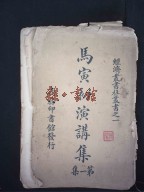 經濟叢書社叢書之一
馬寅初演講集
第一集
商務印書館發行